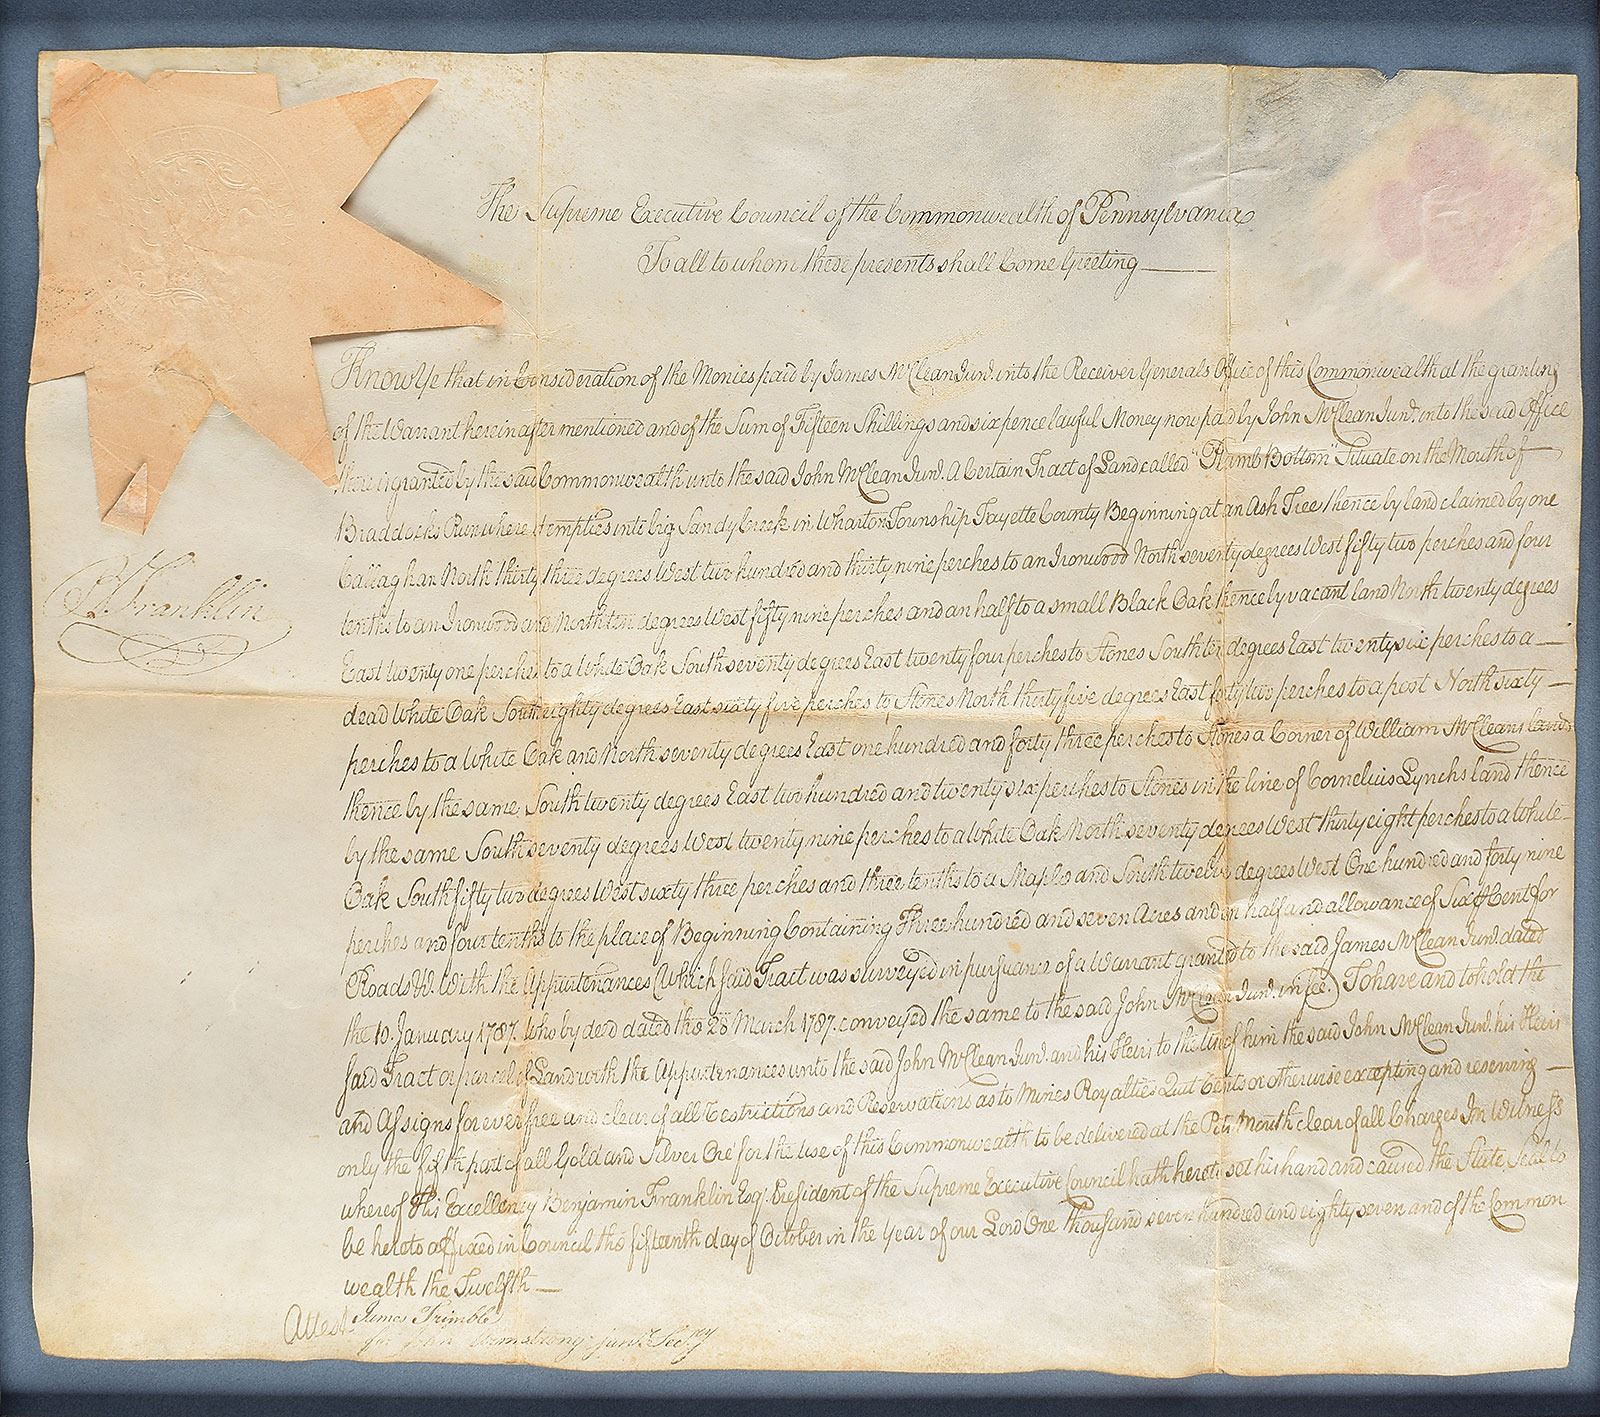 The Supreme Executive Council of the Commonwealth of Pennsylvania
To all to whom these presents shall Come Greeting
Know Ye that in Consideration of the Monies paid by James McClean Junr. into the Receiver Generals Office of this Commonwealth at the granting
of the Warrant herein after mentioned and of the Sum of Fifteen Shillings and six pence lawful Money now paid by John McClean Junr. into the said Office
there is granted by the said Commonwealth unto the said John McClean Junr. A Certain Tract of Land called Bottom" Situate on the Mouth of
Braddocks Run where it empties into big Sandy Creek in Wharton Township Fayette County Beginning at an Ash Tree thence by land claimed by one
Callaghan North thirty three degrees West two hundred and thirty nine perches to an Ironwood North seventy degrees West fifty two perches and four
tenths to an Ironwood and North ten degrees West fifty nine perches and an half to a small Black Oak thence by vacant land North twenty degrees
East twenty one perches to a White Oak South seventy degrees East twenty four perches to Stones South ten degrees East twenty six perches to a
dead White Oak South eighty degrees East sixty five perches to Stones North thirty five degrees East forty two perches to a post North sixty
perches to a White Oak and North seventy degrees East one hundred and forty three perches to Stones a Corner of William McCleans land
thence by the same South twenty degrees East two hundred and twenty six perches to Stones in the line of Cornelius Lynchs land thence
by the same South seventy degrees West twenty nine perches to a White Oak North seventy degrees West thirty eight perches to a White
Oak South fifty two degrees West sixty three perches and three tenths to a Maple and South twelve degrees West One hundred and forty nine
perches and four tenths to the place of Beginning Containing Three hundred and seven Acres and an half and allowance of Six Cent for
Roads &c. With the Appurtenances (Which said Tract was surveyed in pursuance of a Warrant granted to the said James McClean Junr. dated
the 10. January 1787. who by deed dated the 28 March 1787. conveyed the same to the said John McClean Junr. in fee) To have and to hold the
said Tract or parcel of Land with the Appurtenances unto the said John McClean Junr. and his Heirs to the use of him the said John McClean Junr. his Heirs
and Assigns for ever free and clear of all Restrictions and Reservations as to Mines Royalties Quit Rents or otherwise excepting and reserving
only the fifth part of all Gold and Silver Ore for the use of this Commonwealth to be delivered at the Pits Mouth clear of all Charges In Witness
whereof His Excellency Benjamin Franklin Esqr. President of the Supreme Executive Council hath hereto set his hand and caused the State Seal to
be hereto affixed in Council the fifteenth day of October in the Year of our Lord One thousand seven hundred and eighty seven and of the Common
wealth the Twelfth
B Franklin
Attest James Trimble
for John Armstrong junr. Secry